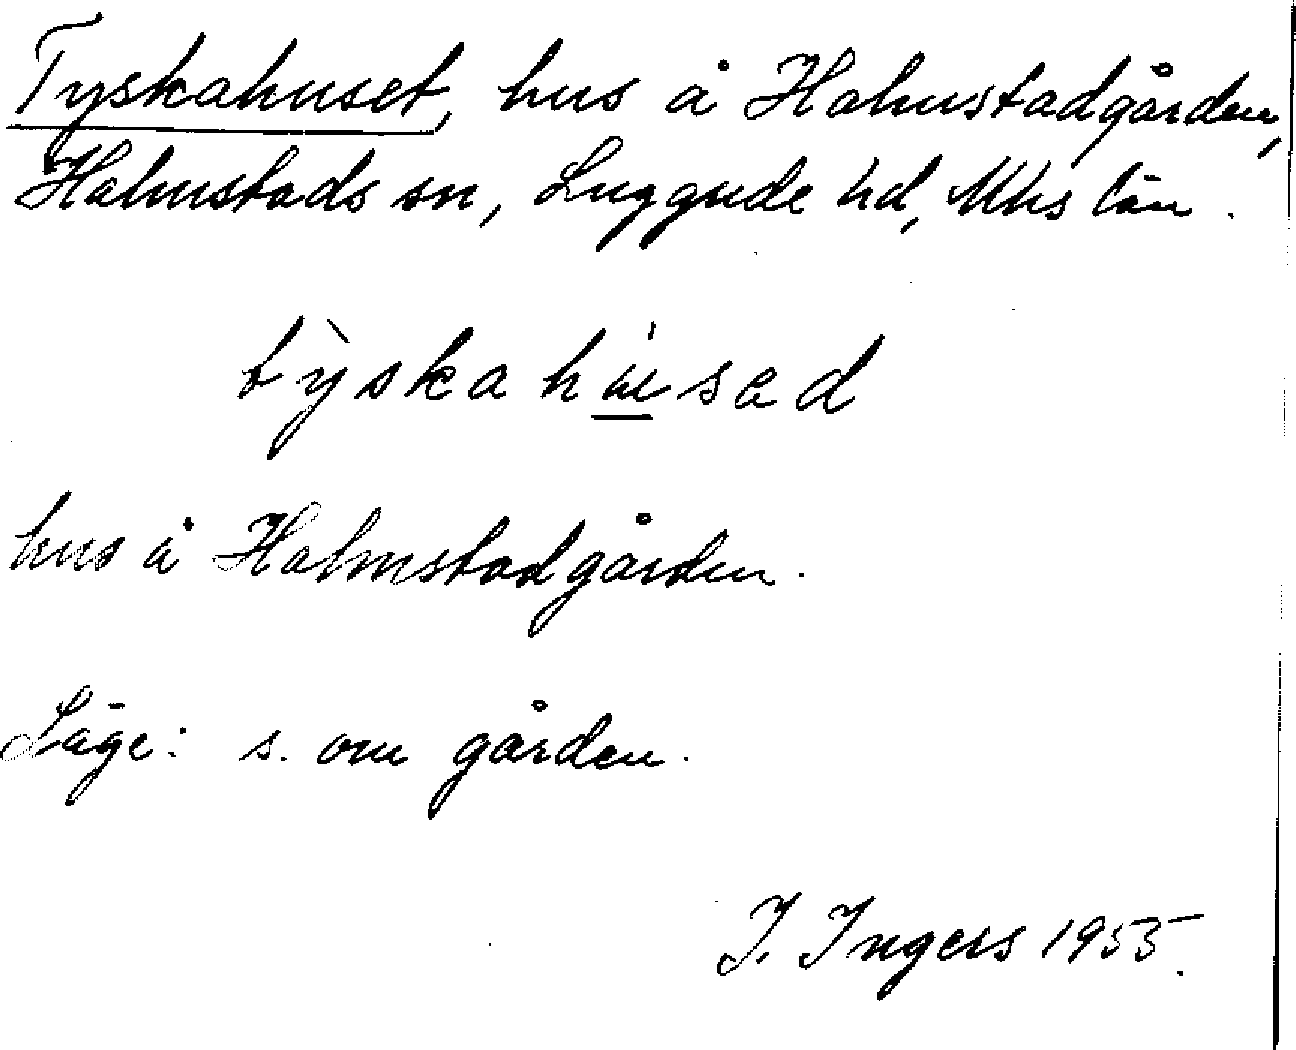 Tyskahuset, hus å Halmstadgården,
Halmstads sn, Luggude hd, Mhs län.
tỳskahúsad
hus å Halmstadgården.
Läge: s. om gården.
I. Ingers 1955.